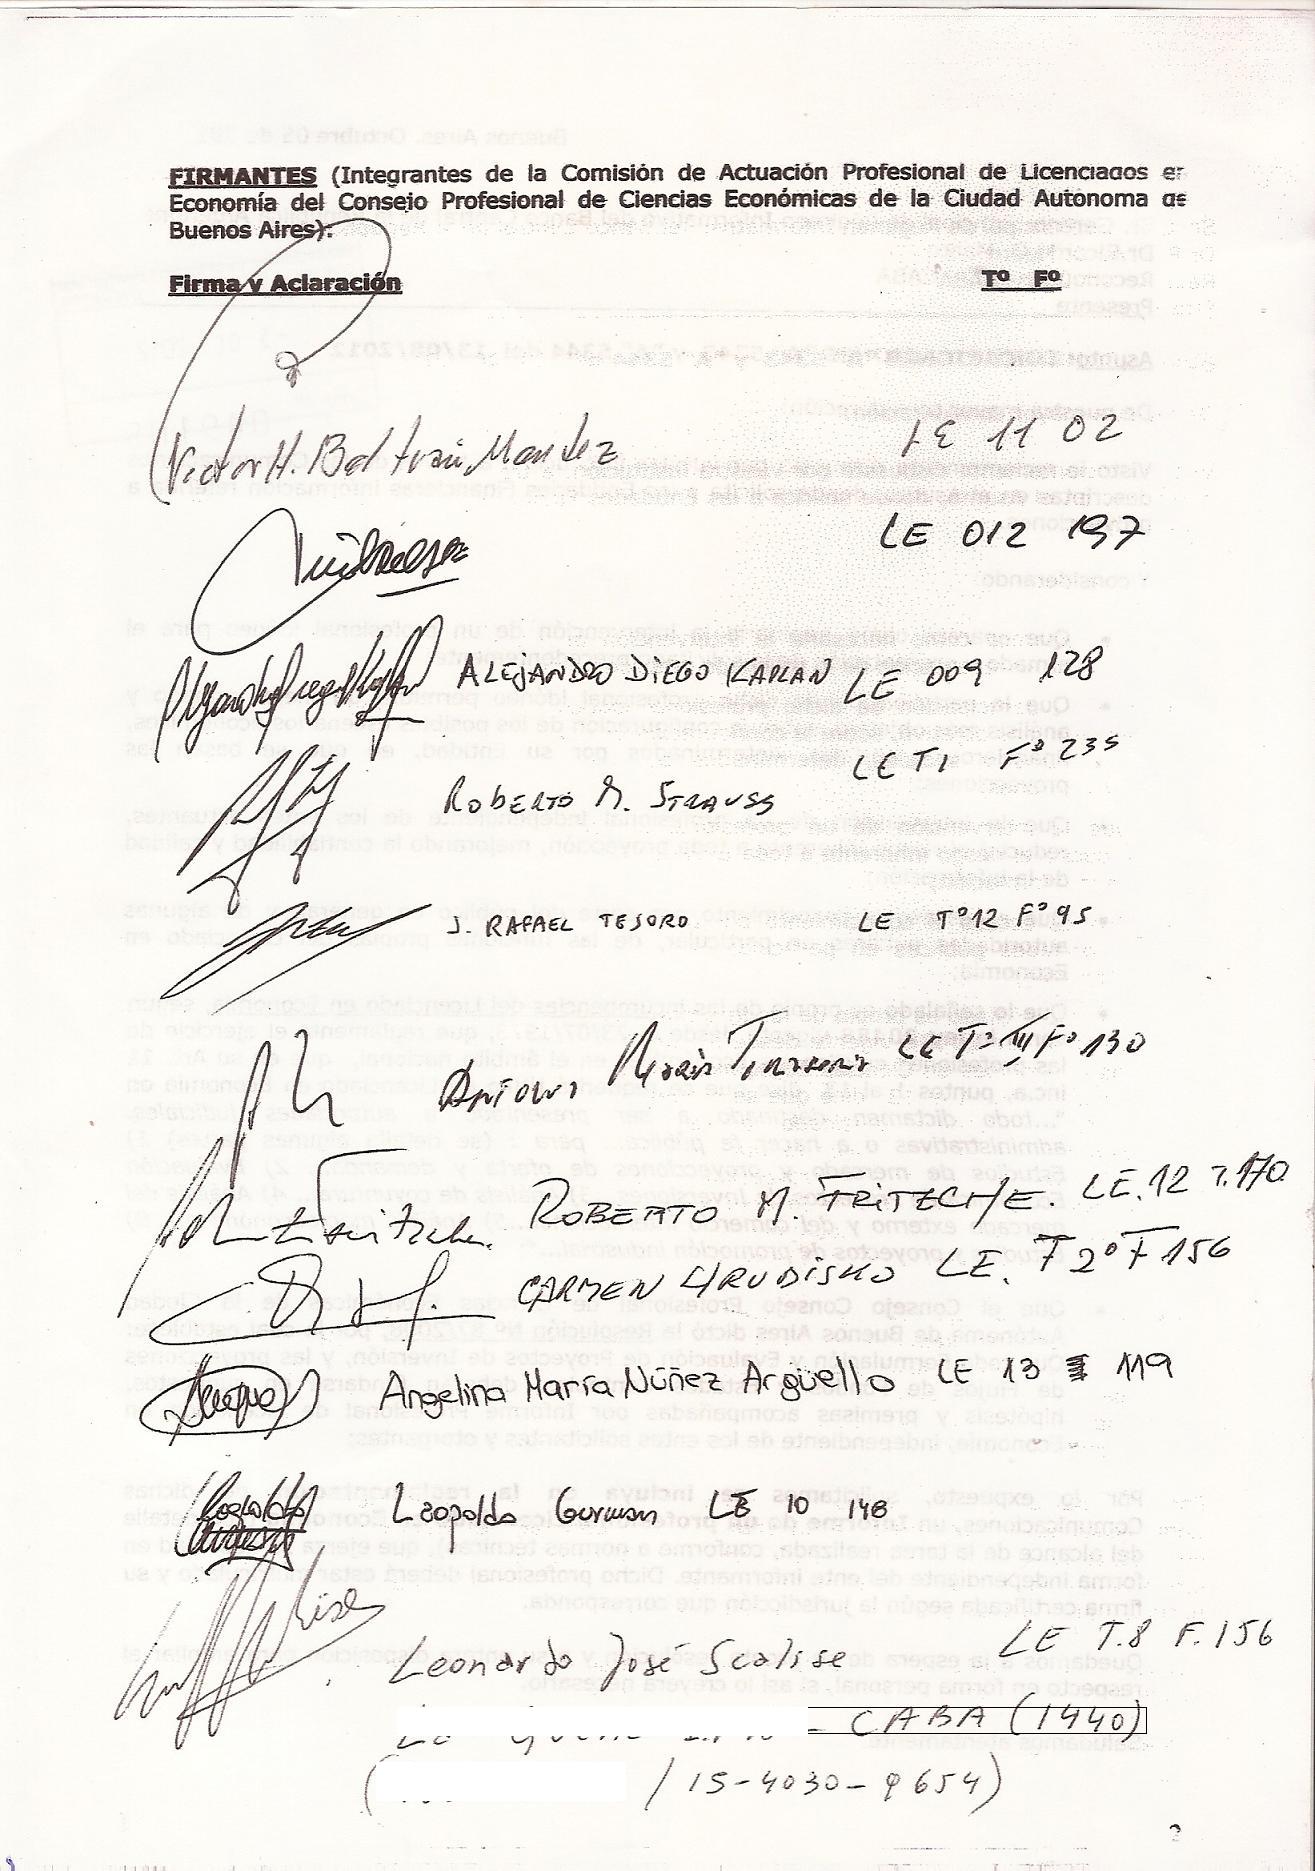 FIRMANTES (Integrantes de la Comisión de Actuación Profesional de Licenciados en
Economía del Consejo Profesional de Ciencias Económicas de la Ciudad Autónoma de
Buenos Aires):
Firma y Aclaración Tº Fº
Victor H. Beltrán Mendez LE 11 02
LE 012 197
ALEJANDRO DIEGO KAPLAN LE 009 128
ROBERTO M. STRAUSS LE T1 Fº 235
J. RAFAEL TESORO LE Tº12 Fº95
Antonio LE Tº III Fº 130
ROBERTO M. FRITZCHE. LE.12 T.170
CARMEN HRUDISKO LE. T 2º F 156
Angelina María Núñez Argüello LE 13 119
Leopoldo Gurman LE 10 148
Leonardo José Scalise LE T.8 F.156
- CABA (1440)
( / 15-4030-9654)
2